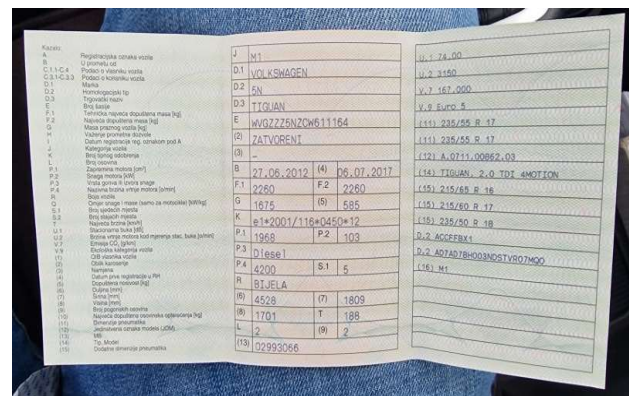 Kazalo:
A Registracijska oznaka vozila
B U prometu od
C.1.1-C.4 Podaci o vlasniku vozila
C.3.1-C.3.3 Podaci o korisniku vozila
D.1 Marka
D.2 Homologacijski tip
D.3 Trgovački naziv
E Broj šasije
F.1 Tehnička najveća dopuštena masa [kg]
F.2 Najveća dopuštena masa [kg]
G Masa praznog vozila [kg]
H Važenje prometne dozvole
I Datum registracije reg. oznakom pod A
J Kategorija vozila
K Broj tipnog odobrenja
L Broj osovina
P.1 Zapremina motora [cm³]
P.2 Snaga motora [kW]
P.3 Vrsta goriva ili izvora snage
P.4 Nazivna brzina vrtnje motora [o/min]
R Boja vozila
Q Omjer snage i mase (samo za motocikle) [kW/kg]
S.1 Broj sjedećih mjesta
S.2 Broj stajaćih mjesta
T Najveća brzina [km/h]
U.1 Stacionarna buka [dB]
U.2 Brzina vrtnje motora kod mjerenja stac. buke [o/min]
V.7 Emisija CO₂ [g/km]
V.9 Ekološka kategorija vozila
(1) OIB vlasnika vozila
(2) Oblik karoserije
(3) Namjena
(4) Datum prve registracije u RH
(5) Dopuštena nosivost [kg]
(6) Duljina [mm]
(7) Širina [mm]
(8) Visina [mm]
(9) Broj pogonskih osovina
(10) Najveće dopušteno osovinsko opterećenje [kg]
(11) Dimenzije pneumatika
(12) Jedinstvena oznaka modela (JOM)
(13) MB
(14) Tip, Model
(15) Dodatne dimenzije pneumatika
J M1
D.1 VOLKSWAGEN
D.2 5N
D.3 TIGUAN
E WVGZZZ5NZCW611164
(2) ZATVORENI
(3) -
B 27.06.2012 (4) 06.07.2017
F.1 2260 F.2 2260
G 1675 (5) 585
K e1*2001/116*0450*12
P.1 1968 P.2 103
P.3 Diesel
P.4 4200 S.1 5
R BIJELA
(6) 4528 (7) 1809
(8) 1701 T 186
L 2 (9) 2
(13) 02993066
U.1 74.00
U.2 3150
V.7 167.000
V.9 Euro 5
(11) 235/55 R 17
(11) 235/55 R 17
(12) A.0711.00862.03
(14) TIGUAN, 2.0 TDI 4MOTION
(15) 215/65 R 16
(15) 215/60 R 17
(15) 235/50 R 18
D.2 ACCFFBX1
D.2 AD7AD7BH003NDSTVR07MQ0
(16) M1